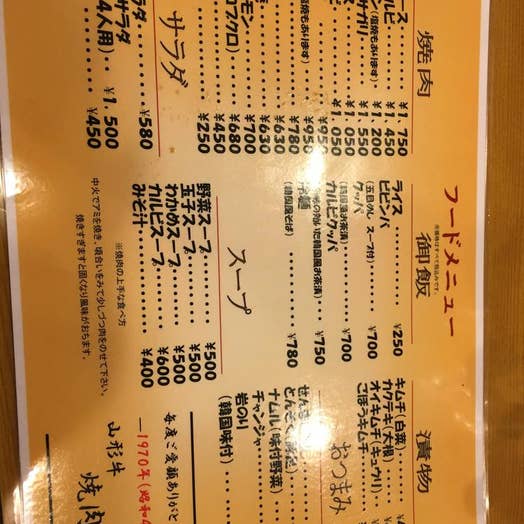 フードメニュー
※価格はすべて税込みです。
焼肉
ース ¥1,750
カルビ ¥1,450
ン(塩焼もあります) ¥1,200
サガリ ¥1,050
¥950
(塩焼もあります) ¥950
¥780
¥630
¥630
モン ¥700
コブクロ) ¥680
¥450
¥250
サラダ
ラダ ¥580
サラダ
4人用) ¥1,500
¥450
御飯
ライス ¥250
ビビンバ
(五目めし スープ付) ¥700
クッパ
(韓国風お茶漬) ¥700
カルビクッパ
の効いた韓国風お茶漬) ¥750
冷麺
(韓国風そば) ¥780
スープ
野菜スープ ¥500
玉子スープ ¥500
わかめスープ ¥500
カルビスープ ¥600
みそ汁 ¥400
※焼肉の上手な食べ方
中火でアミを焼き、頃合いをみて少しづつ肉をのせて下さい。
焼きすぎますと固くなり風味がおちます。
漬物
キムチ(白菜)
カクテキ(大根)
オイキムチ(キュウリ)
ごぼうキムチ
おつまみ
せん
とんそく
ナムル(味付野菜)
チャンジャ
岩のり
(韓国味付)
毎度ご愛顧ありがと
―1970年(昭和4
山形牛
焼肉